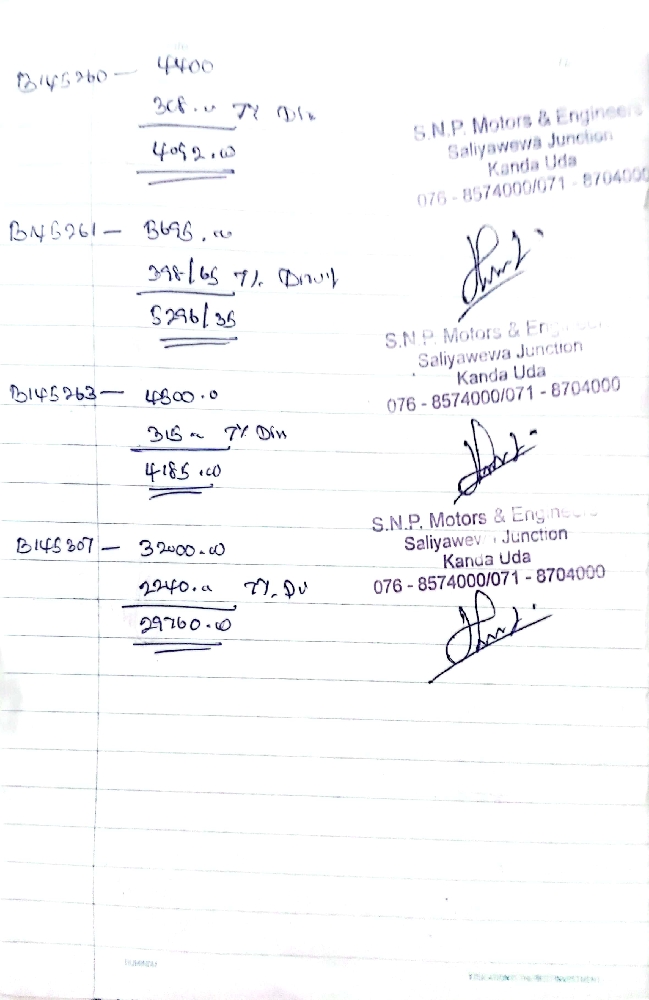 B145260 — 4400
308.00 7% Dis
4092.00
S.N.P. Motors & Engineers
Saliyawewa Junction
Kanda Uda
076 - 8574000/071 - 8704000
B145261 — 5695.00
398/65 7%
5296/35
S.N.P. Motors &
Saliyawewa Junction
Kanda Uda
076 - 8574000/071 - 8704000
B145263 — 4500.0
315 7% Dis
4185.00
S.N.P. Motors &
Junction
Kanda Uda
076 - 8574000/071 - 8704000
B145307 — 32000.00
2240.00 7%
29760.00